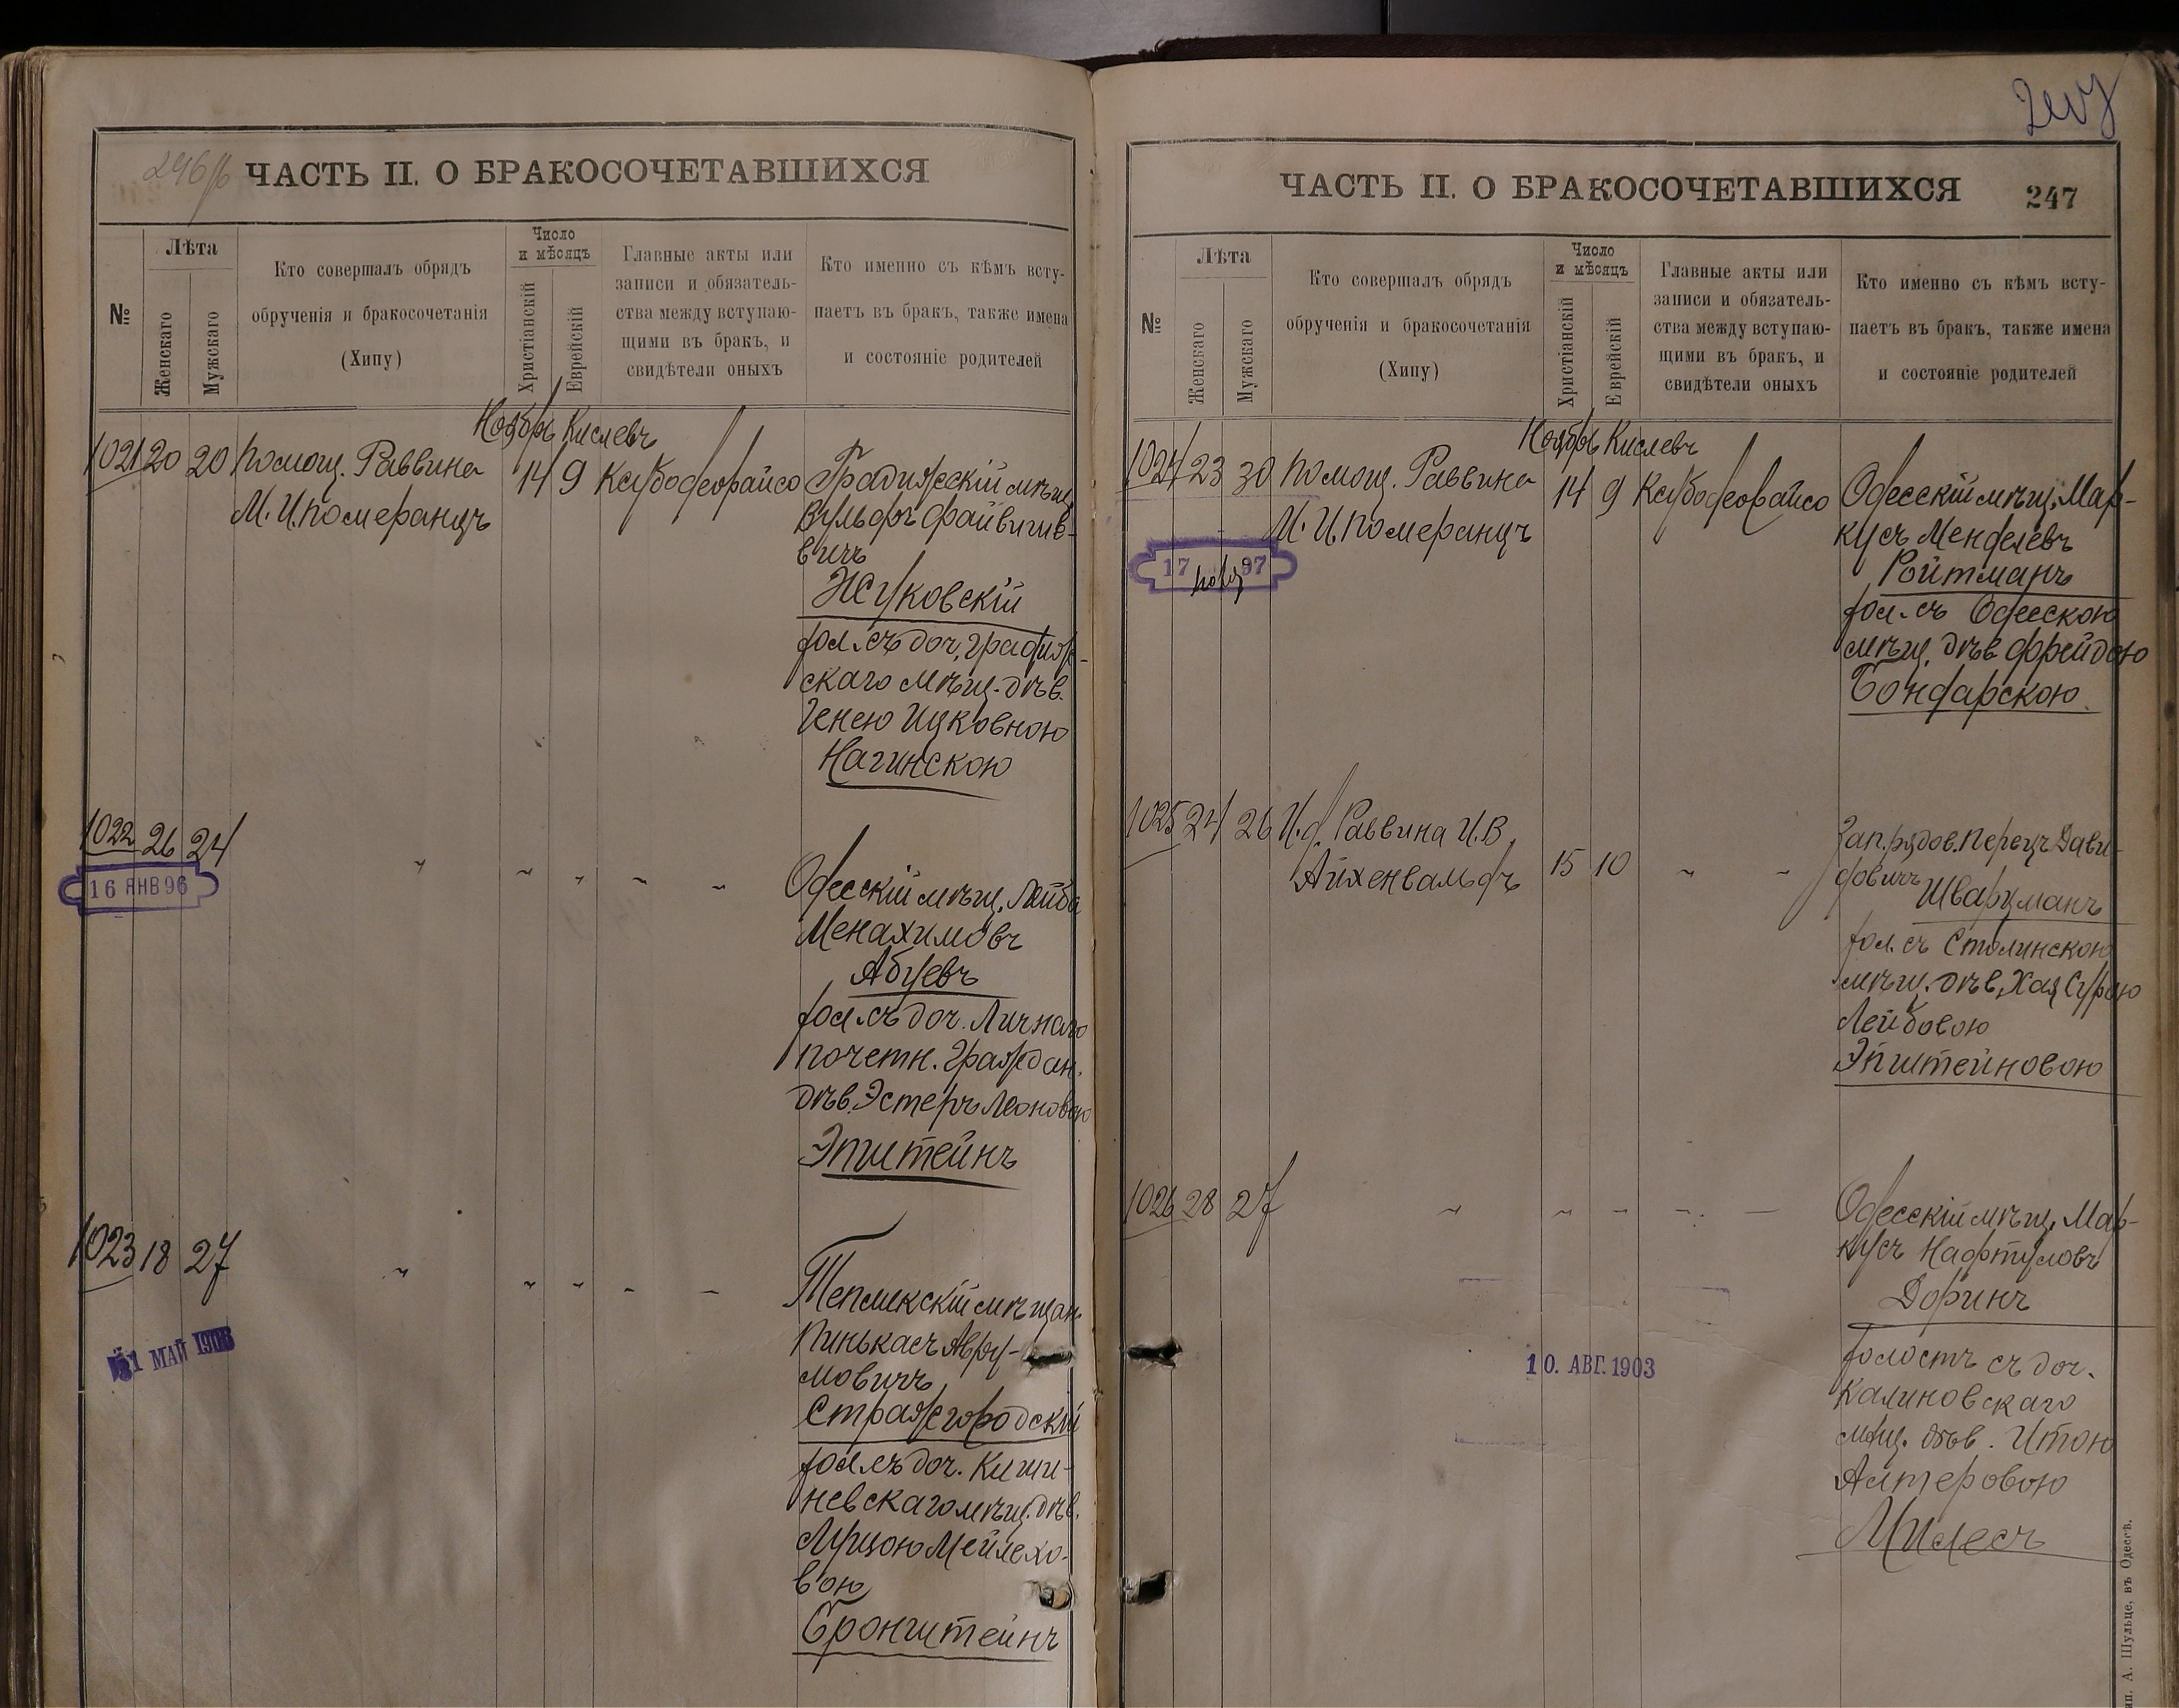 ЧАСТЬ II. О БРАКОСОЧЕТАВШИХСЯ
№
Лѣта
Женскаго
Мужскаго
Кто совершалъ обрядъ
обрученія и бракосочетанія
(Хипу)
Число
и мѣсяцъ
Христіанскій
Еврейскій
Главные акты или
записи и обязатель-
ства между вступаю-
щими въ бракъ, и
свидѣтели оныхъ
Кто именно съ кѣмъ всту-
паетъ въ бракъ, также имена
и состояніе родителей
Ноябрь Кислевъ
1021 20 20 Помощ. Раввина 14 9 Ксубодеорайсо Градижскій мѣщ.
М. И. Померанцъ Вульфъ Файвигие-
вичъ
Жуковскій
хол. съ доч. градиж-
скаго мѣщ. дѣв.
Генею Ицковною
Нагинскою
1022 26 24 " " " " " Одесскій мѣщ. Лейба
16 ЯНВ 96
Менахимовъ
Абуевъ
хол. съ доч. Личнаго
почетн. Граждан.
дѣв. Эстеръ Леоновою
Эпштейнъ
1023 18 27 " " " " " Тепликскій мѣщан.
31 МАЙ 1906
Пинькасъ Авру-
мовичъ
Стражгородскій
хол. съ доч. Киши-
невскаго мѣщ. дѣв.
Мейлехо-
вою
Бронштейнъ
ЧАСТЬ II. О БРАКОСОЧЕТАВШИХСЯ 247
№
Лѣта
Женскаго
Мужскаго
Кто совершалъ обрядъ
обрученія и бракосочетанія
(Хипу)
Число
и мѣсяцъ
Христіанскій
Еврейскій
Главные акты или
записи и обязатель-
ства между вступаю-
щими въ бракъ, и
свидѣтели оныхъ
Кто именно съ кѣмъ всту-
паетъ въ бракъ, также имена
и состояніе родителей
Ноябрь Кислевъ
1024 23 30 Помощ. Раввина 14 9 Ксубодеорайсо Одесскій мѣщ. Мар-
М. И. Померанцъ кусъ Менделевъ
17 97
Ройтманъ
хол. съ Одесскою
мѣщ. дѣв. Фрейдою
Бондарскою
1025 24 26 И. д. Раввина И. В. Зап. рядов. Перецъ Дави-
Айхенвальдъ 15 10 " " довичъ
Шварцманъ
хол. съ Столинскою
мѣщ. дѣв. Хая Сурою
Лейбовою
Эпштейновою
1026 28 27 " " " " " Одесскій мѣщ. Мар-
кусъ Нафтуловъ
Доринъ
10. АВГ. 1903
холостъ съ доч.
Калиновскаго
мѣщ. дѣв. Итою
Алтеровою
Милесъ
А. Шульце, въ Одессѣ.